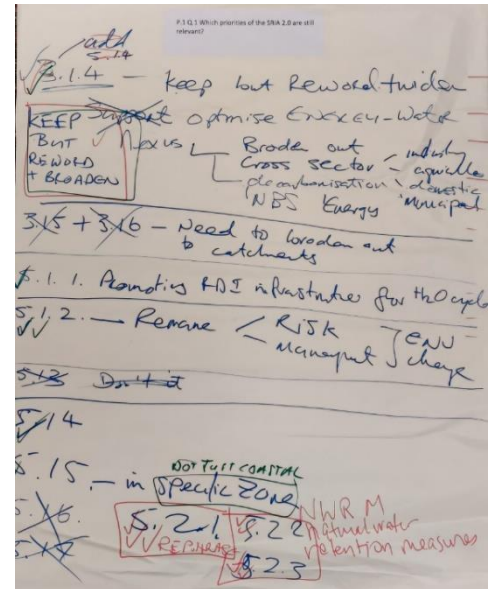 P.1 Q.1 Which priorities of the SRIA 2.0 are still relevant?
add
5.1.4
3.1.4 — Keep but Reword + widen
KEEP BUT REWORD + BROADEN
Support Optimise Energy-Water
Nexus
Broden out
Cross sector - industry
agriculture
decarbonisation domestic
NBS Energy Municipal
3.15 + 3.16 — Need to broden out
to catchments
5.1.1. Promoting RDI infrastructure for H2O cycle
5.1.2. — Rename
RISK
Management
ENV
change
5.13
5.14
NOT JUST COASTAL
5.15. — in Specific Zone
5.16.
5.17
5.2.1.
REPHRASE
5.2.2
5.2.3
NWRM
Natural water
retention measures